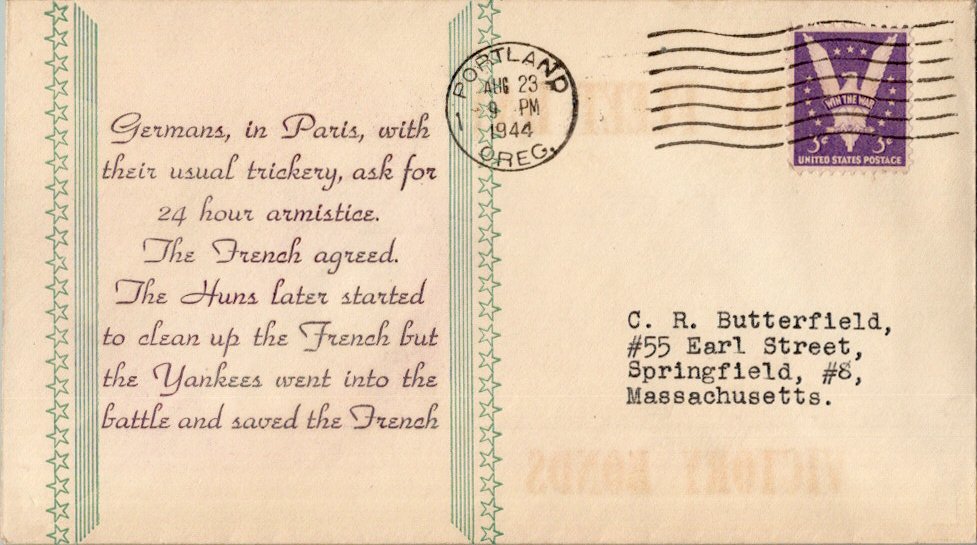 Germans, in Paris, with
their usual trickery, ask for
24 hour armistice.
The French agreed.
The Huns later started
to clean up the French but
the Yankees went into the
battle and saved the French
PORTLAND
1
AUG 23
9 PM
1944
OREG.
WIN THE WAR
3¢ 3¢
UNITED STATES POSTAGE
C. R. Butterfield,
#55 Earl Street,
Springfield, #8,
Massachusetts.
VICTORY BONDS